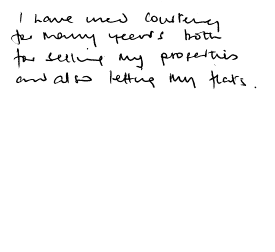 I have used Courtenay
for many years both
for selling my properties
and also letting my flats.